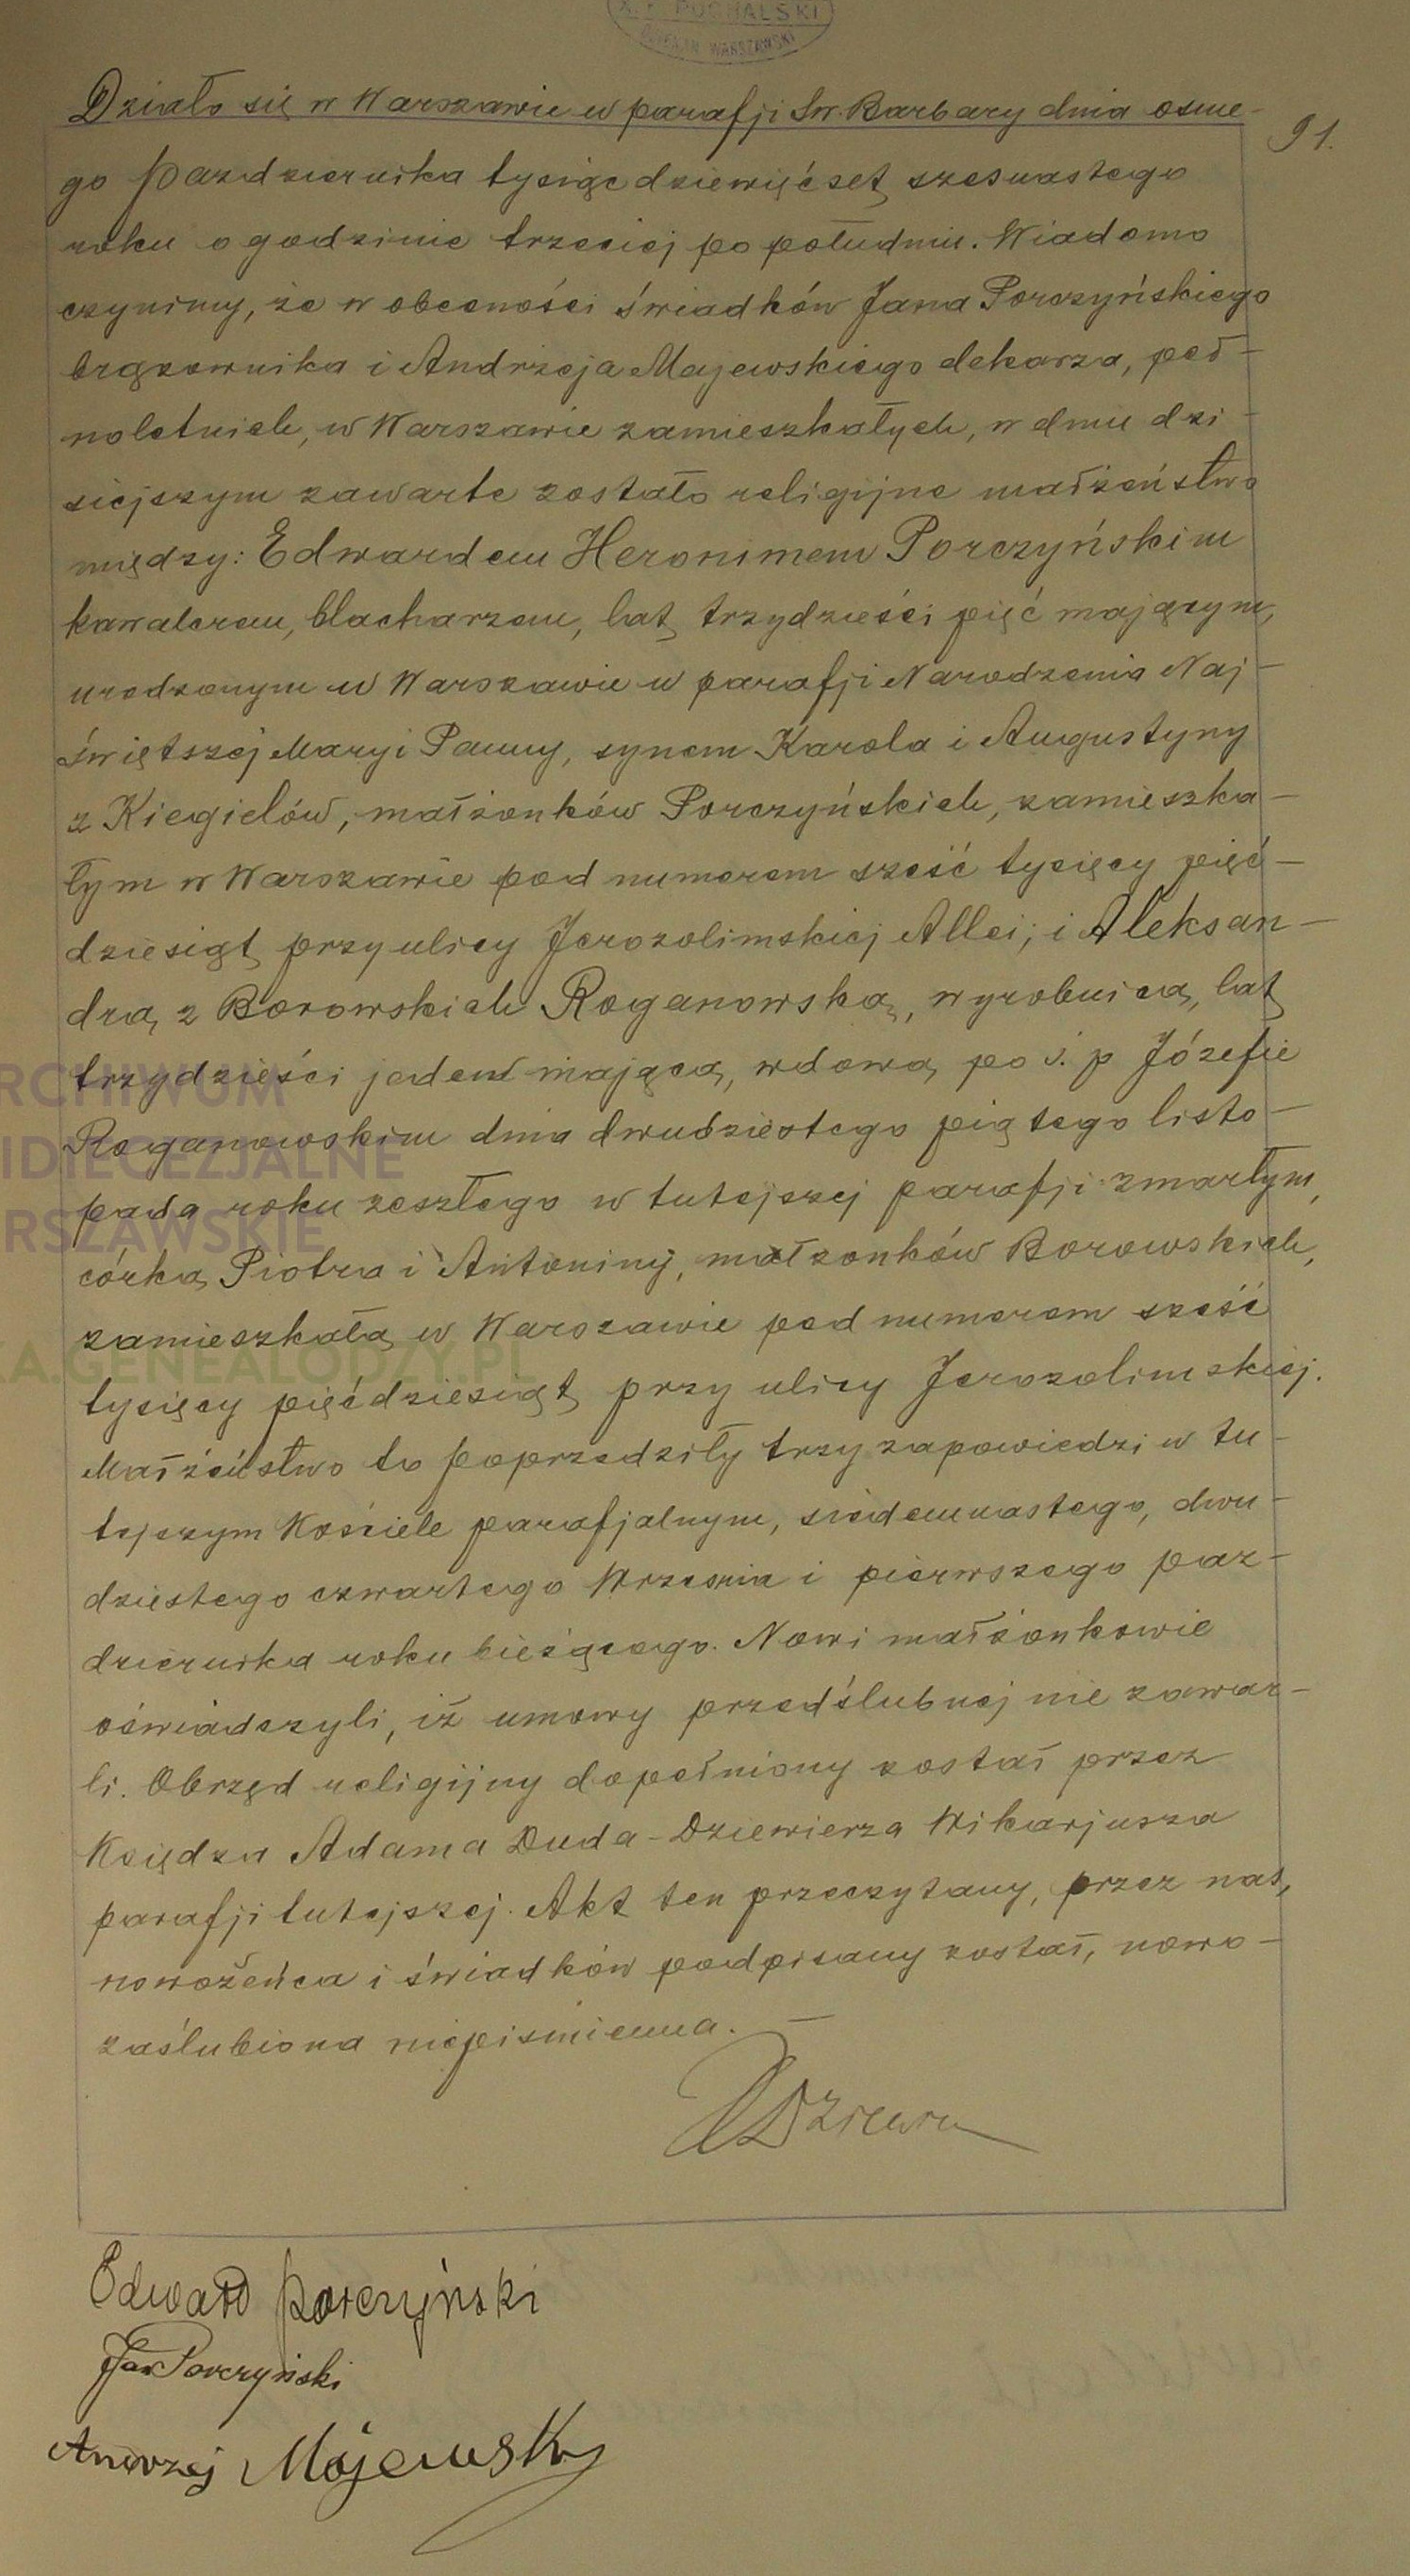 X. F. PUCHALSKI
DZIEKAN WARSZAWSKI
Działo się w Warszawie w parafji Św. Barbary dnia ósme-
91.
go października tysiąc dziewięćset szesnastego
roku o godzinie trzeciej po południu. Wiadomo
czynimy, że w obecności świadków Jana Porczyńskiego
brązownika i Andrzeja Majewskiego dekarza, peł-
noletnich, w Warszawie zamieszkałych, w dniu dzi-
siejszym zawarte zostało religijne małżeństwo
między: Edwardem Heronimem Porczyńskim
kawalerem, blacharzem, lat trzydzieści pięć mającym,
urodzonym w Warszawie w parafji Narodzenia Naj-
świętszej Maryi Panny, synem Karola i Augustyny
z Kiegielów, małżonków Porczyńskich, zamieszka-
łym w Warszawie pod numerem sześć tysięcy pięć-
dziesiąt przy ulicy Jerozolimskiej Allei; i Aleksan-
drą z Borowskich Roganowską, wyrobnicą, lat
trzydzieści jeden mającą, wdową po ś. p Józefie
Roganowskim dnia dwudziestego piątego listo-
pada roku zeszłego w tutejszej parafji zmarłym,
córką Piotra i Antoniny, małżonków Borowskich,
zamieszkałą w Warszawie pod numerem sześć
tysięcy pięćdziesiąt przy ulicy Jerozolimskiej.
Małżeństwo to poprzedziły trzy zapowiedzi w tu-
tejszym Kościele parafjalnym, siedemnastego, dwu-
dziestego czwartego Września i pierwszego paź-
dziernika roku bieżącego. Nowi małżonkowie
oświadczyli, iż umowy przedślubnej nie zawar-
li. Obrzęd religijny dopełniony został przez
Księdza Adama Duda-Dziewierza Wikarjusza
parafji tutejszej. Akt ten przeczytany, przez nas,
nowożeńca i świadków podpisany został, nowo-
zaślubiona niepiśmienna. —
Edward Porczyński
Jan Porczyński
Andrzej Majewski
ARCHIWUM
ARCHIDIECEZJALNE
WARSZAWSKIE
KA.GENEALODZY.PL